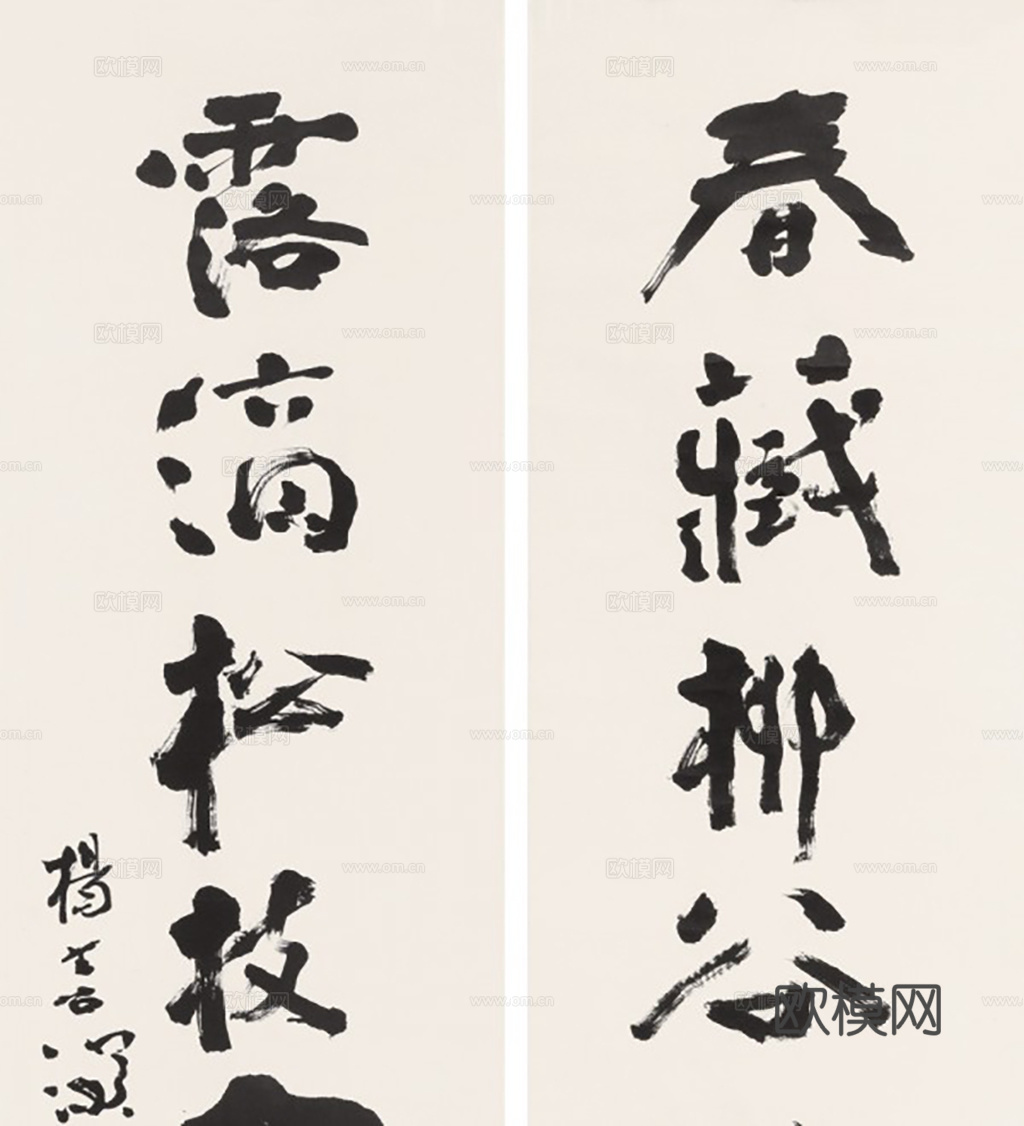 春藏柳谷
露滴松枝
楊善深
欧模网
www.om.cn